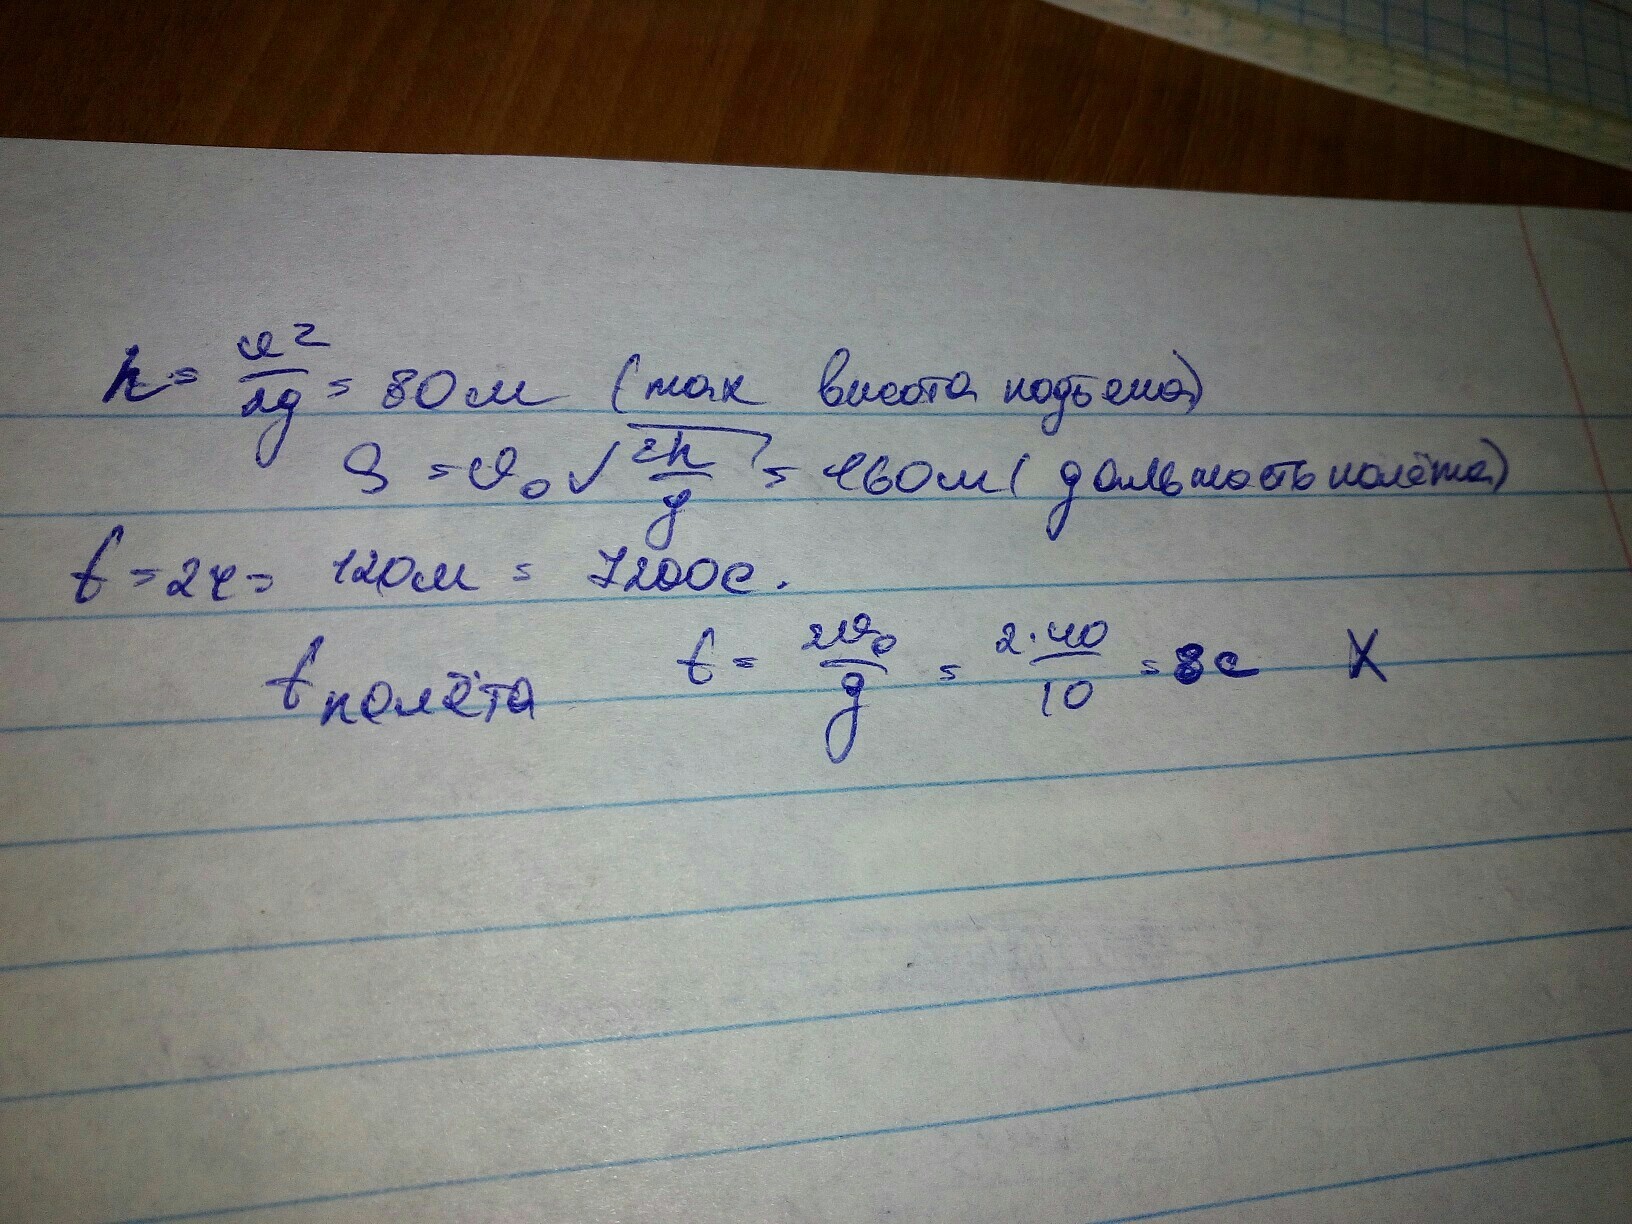 h = υ²/2g = 80м (max высота подъема)
S = υ₀√(2h/g) = 160м (дальность полёта)
t = 2ч = 120м = 7200с.
t полёта t = 2υ₀/g = 2·40/10 = 8с X